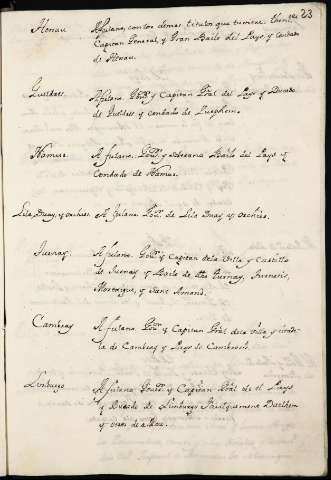 23
Henau A fulano, con los demas titulos que tuviere
Capitan General, y Gran Bailo del Pays y Condado
de Henau.
A fulano Gou.or y Capitan Gral del Pays y Ducado
de y Condado de Zutphem.
Namur A fulano Gou.or y Bailo del Pays y
Condado de Namur.
Lila, Duay, y Orchies. A fulano Gou.or de Lila Duay y Orchies.
Tornay A fulano Gou.or y Capitan dela Villa y Castillo
de Tornay y Bailo de Tornay,
Mortaigne, y Sant Amand.
Cambray A fulano Gou.or y Capitan Gral dela Villa y
de Cambray y Pays de Cambresis.
Limburgo A fulano Gou.or y Capitan Gral de el Pays
y Ducado de Limburgo Daelhem
y otros